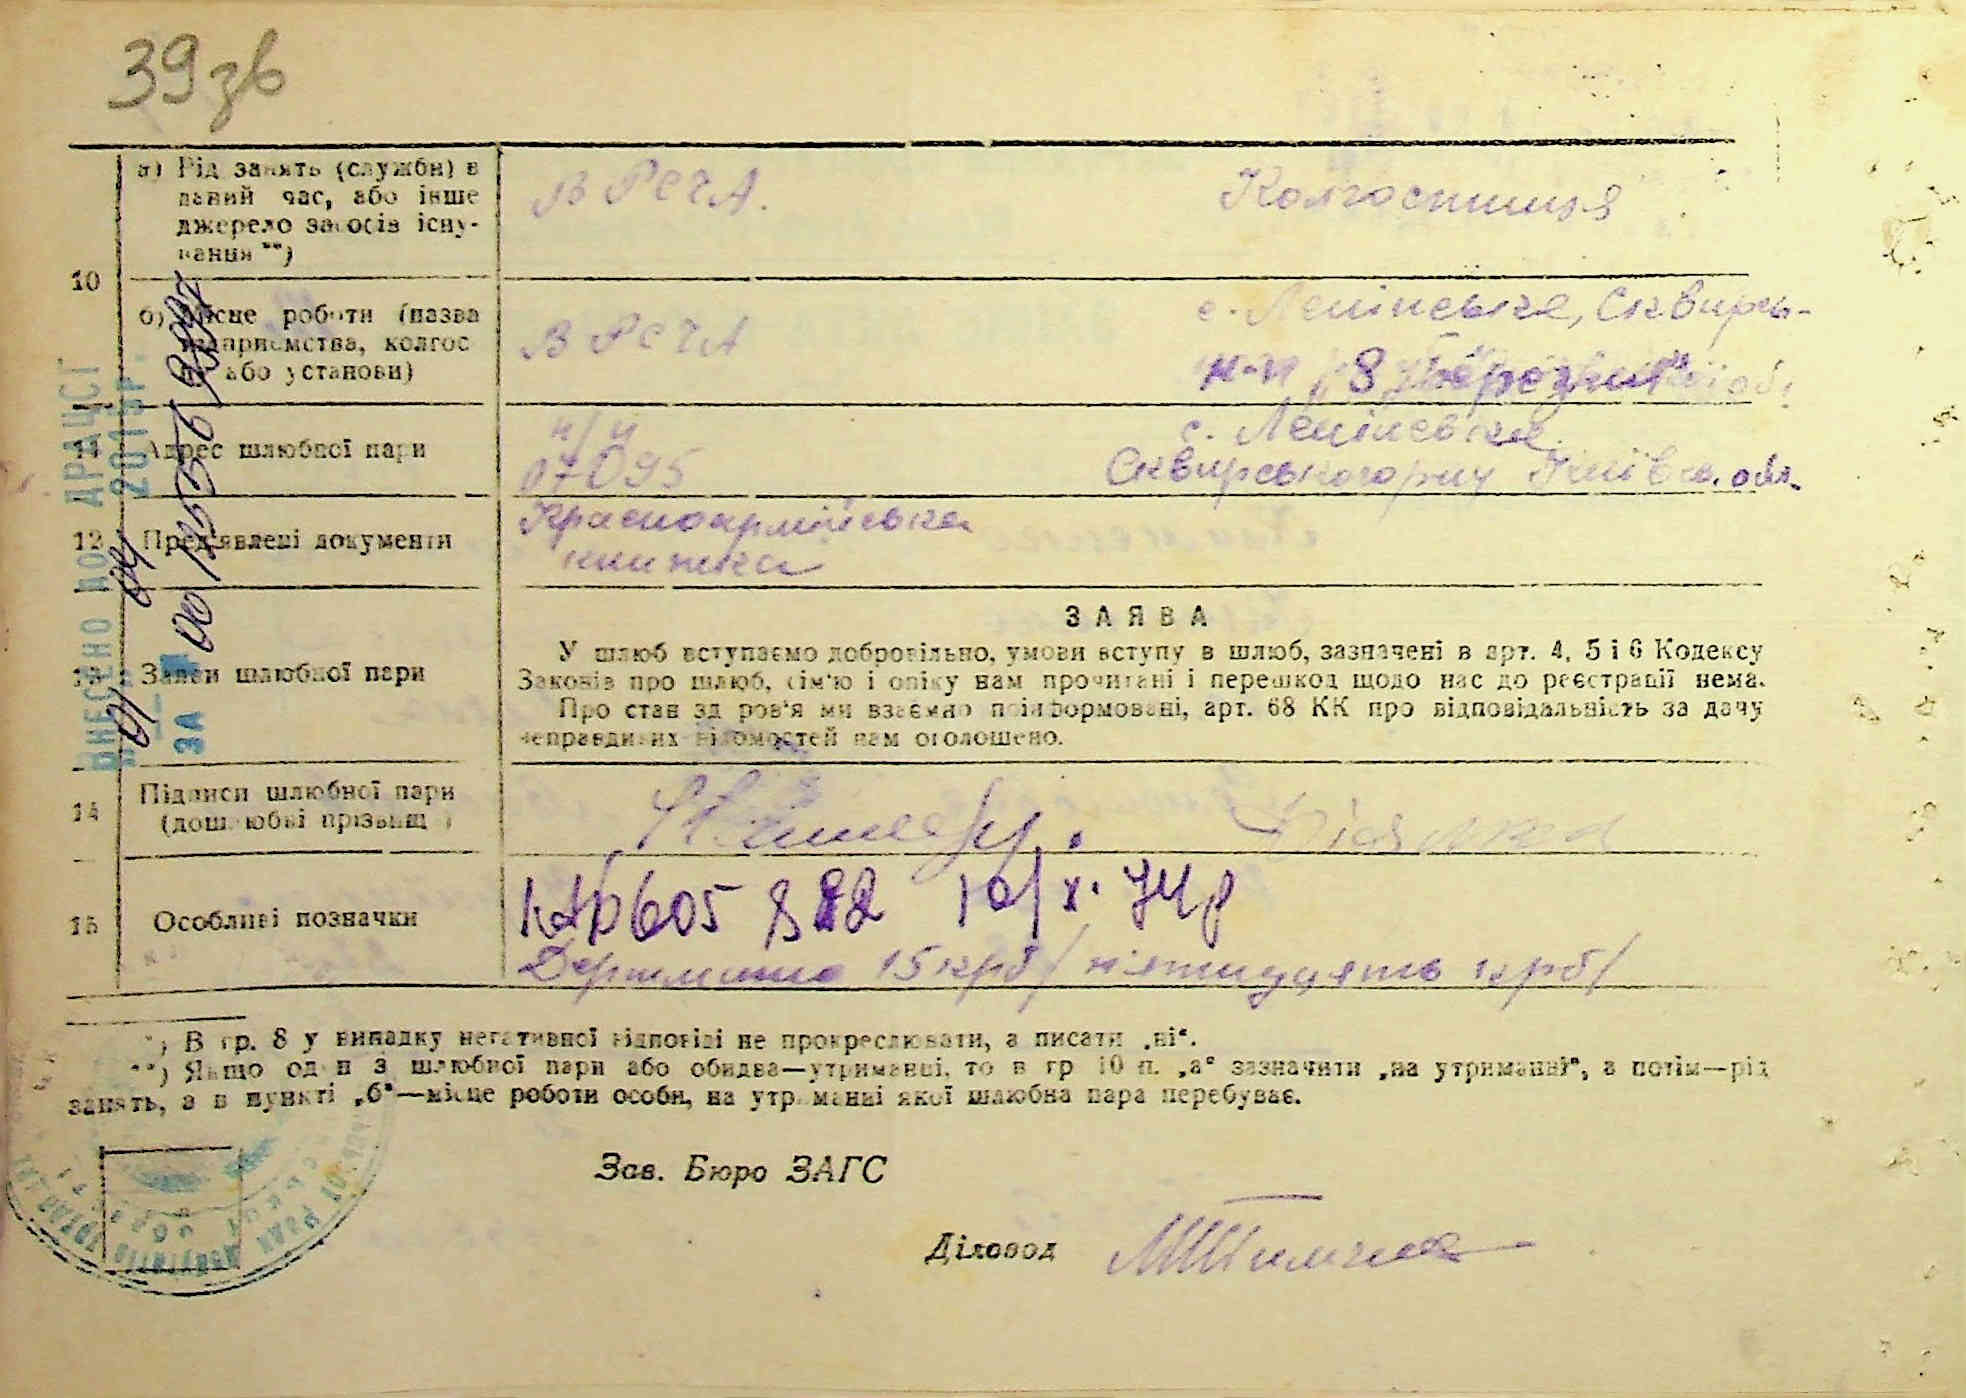 39 зв
а) Рід занять (служби) в
даний час, або інше
джерело засобів існу-
вання **)
В РСЧА.
Колгоспниця
10
б) Місце роботи (назва
підприємства, колгос
пу або установи)
В РСЧА
с. Ленінське, Сквирсь-
к-п "8 Березня"
11
Адрес шлюбної пари
п/п
07095
с. Ленінське
Сквирського р-ну Київсь. обл.
12
Пред'явлені документи
Красноармійська
книжка
13
Заяви шлюбної пари
ЗАЯВА
У шлюб вступаємо добровільно, умови вступу в шлюб, зазначені в арт. 4, 5 і 6 Кодексу
Законів про шлюб, сім'ю і опіку нам прочитані і перешкод щодо нас до реєстрації нема.
Про стан здоров'я ми взаємно поінформовані, арт. 68 КК про відповідальність за дачу
неправдивих відомостей нам оголошено.
14
Підписи шлюбної пари
(дошлюбні прізвищ )
15
Особливі позначки
605 882 10/X. 74р
Держмито 15 крб / п'ятнадцять крб/
*) В гр. 8 у випадку негативної відповіді не прокреслювати, а писати „ні“.
**) Якщо один з шлюбної пари або обидва—утриманці, то в гр 10 п. „а“ зазначити „на утриманні“, а потім—рід
занять, а в пункті „б“—місце роботи особи, на утриманні якої шлюбна пара перебуває.
Зав. Бюро ЗАГС
Діловод
ВНЕСЕНО ДО ДРАЦСГ
201 р.
ЗА №